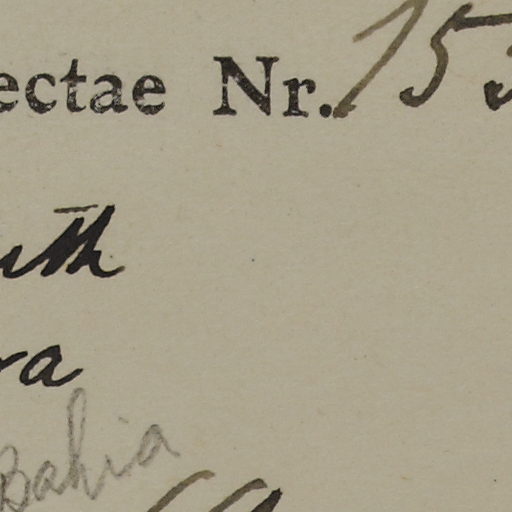 ectae Nr. 15
uth
ra
Bahia